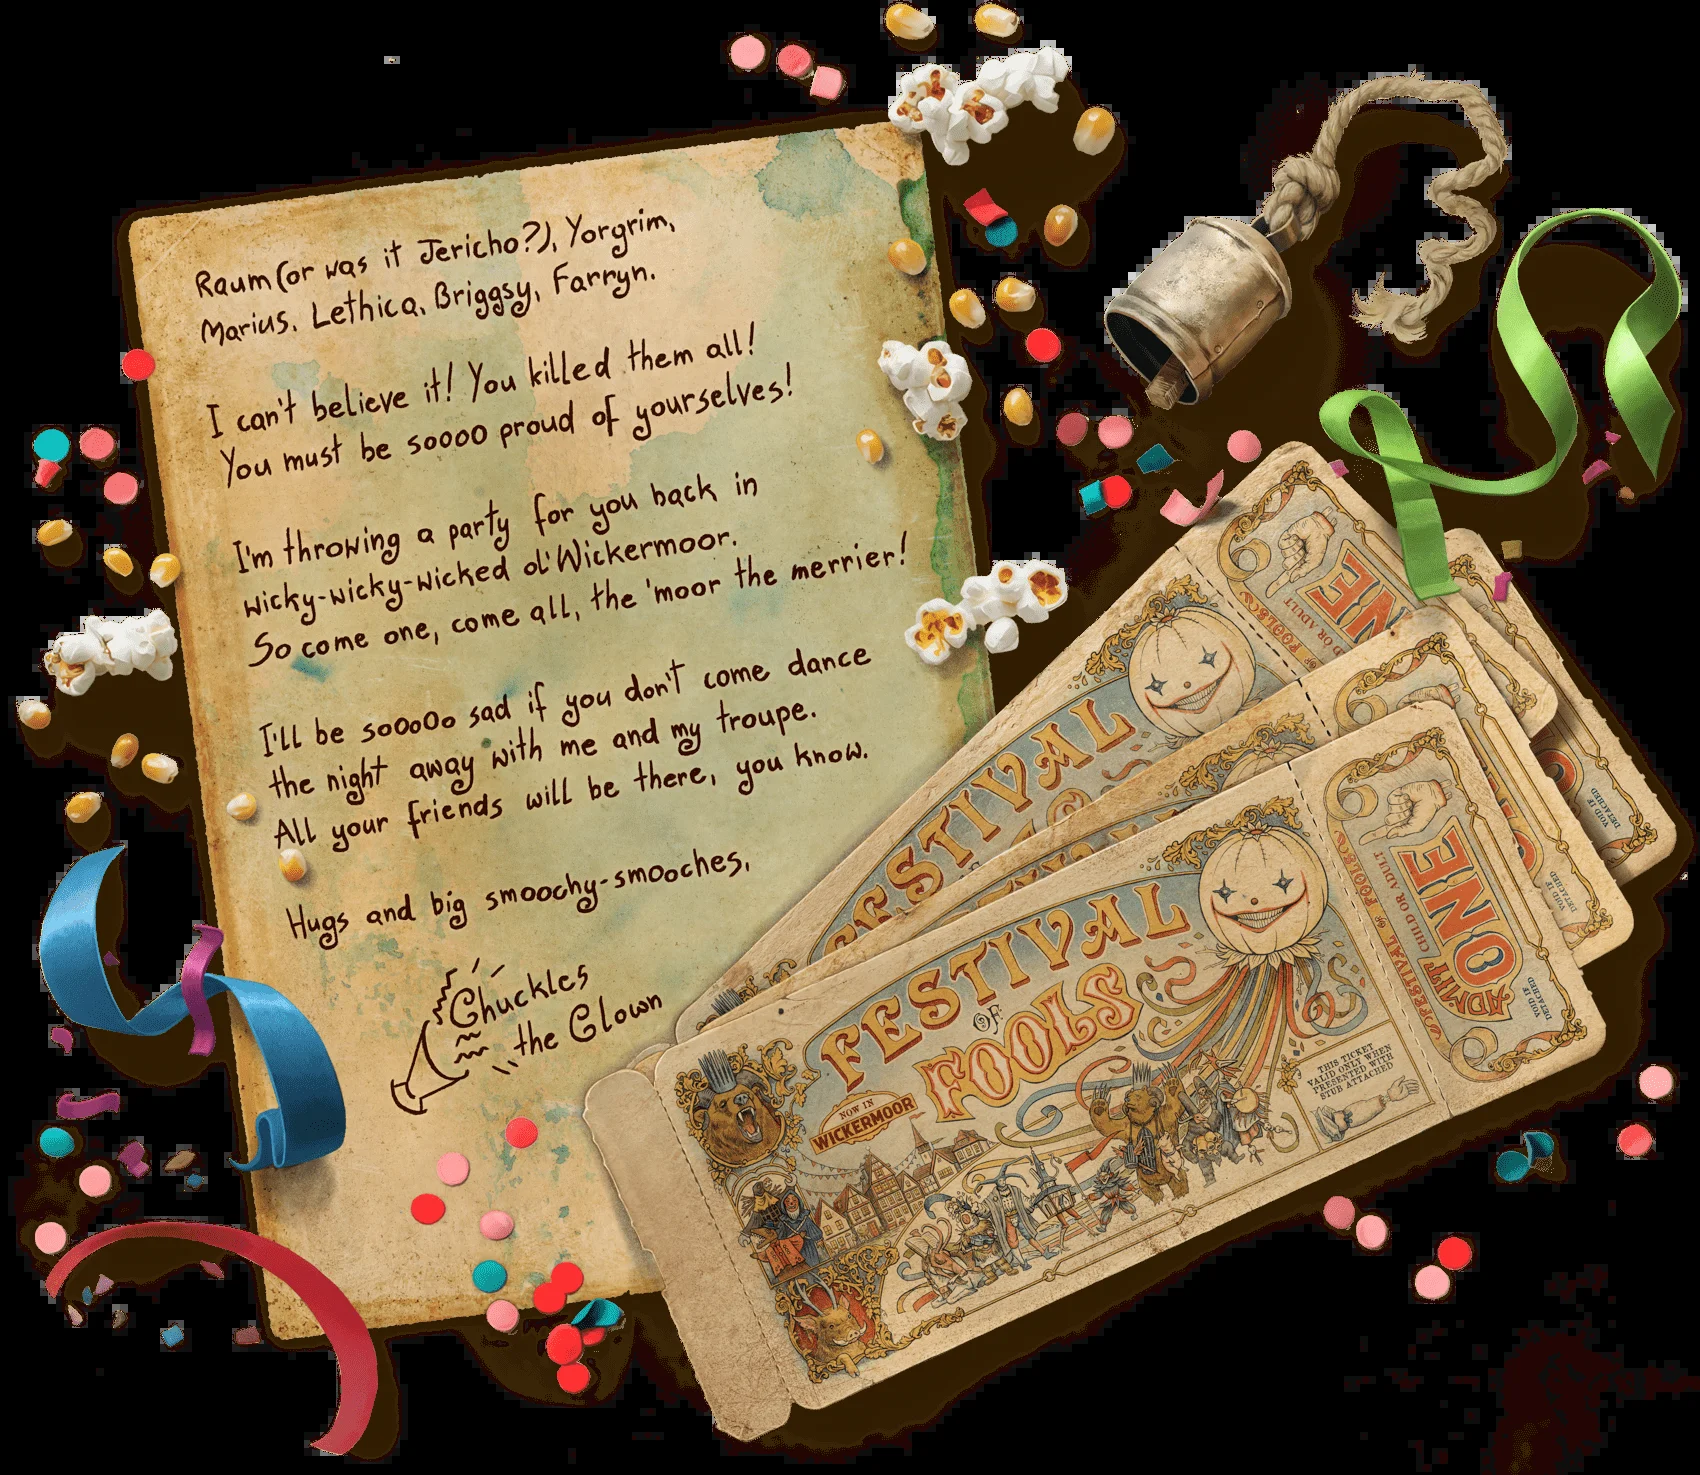 Raum (or was it Jericho?), Yorgrim,
Marius, Lethica, Briggsy, Farryn.
I can't believe it! You killed them all!
You must be soooo proud of yourselves!
I'm throwing a party for you back in
wicky-wicky-wicked ol' Wickermoor.
So come one, come all, the 'moor the merrier!
I'll be sooooo sad if you don't come dance
the night away with me and my troupe.
All your friends will be there, you know.
Hugs and big smoochy-smooches,
Chuckles
the Clown
FESTIVAL
FESTIVAL
OF
FOOLS
NOW IN
WICKERMOOR
THIS TICKET
VALID ONLY WHEN
PRESENTED WITH
STUB ATTACHED
FESTIVAL OF FOOLS
CHILD OR ADULT
ADMIT
ONE
VOID IF
DETACHED
VOID IF
DETACHED
VOID IF
DETACHED
OR ADULT